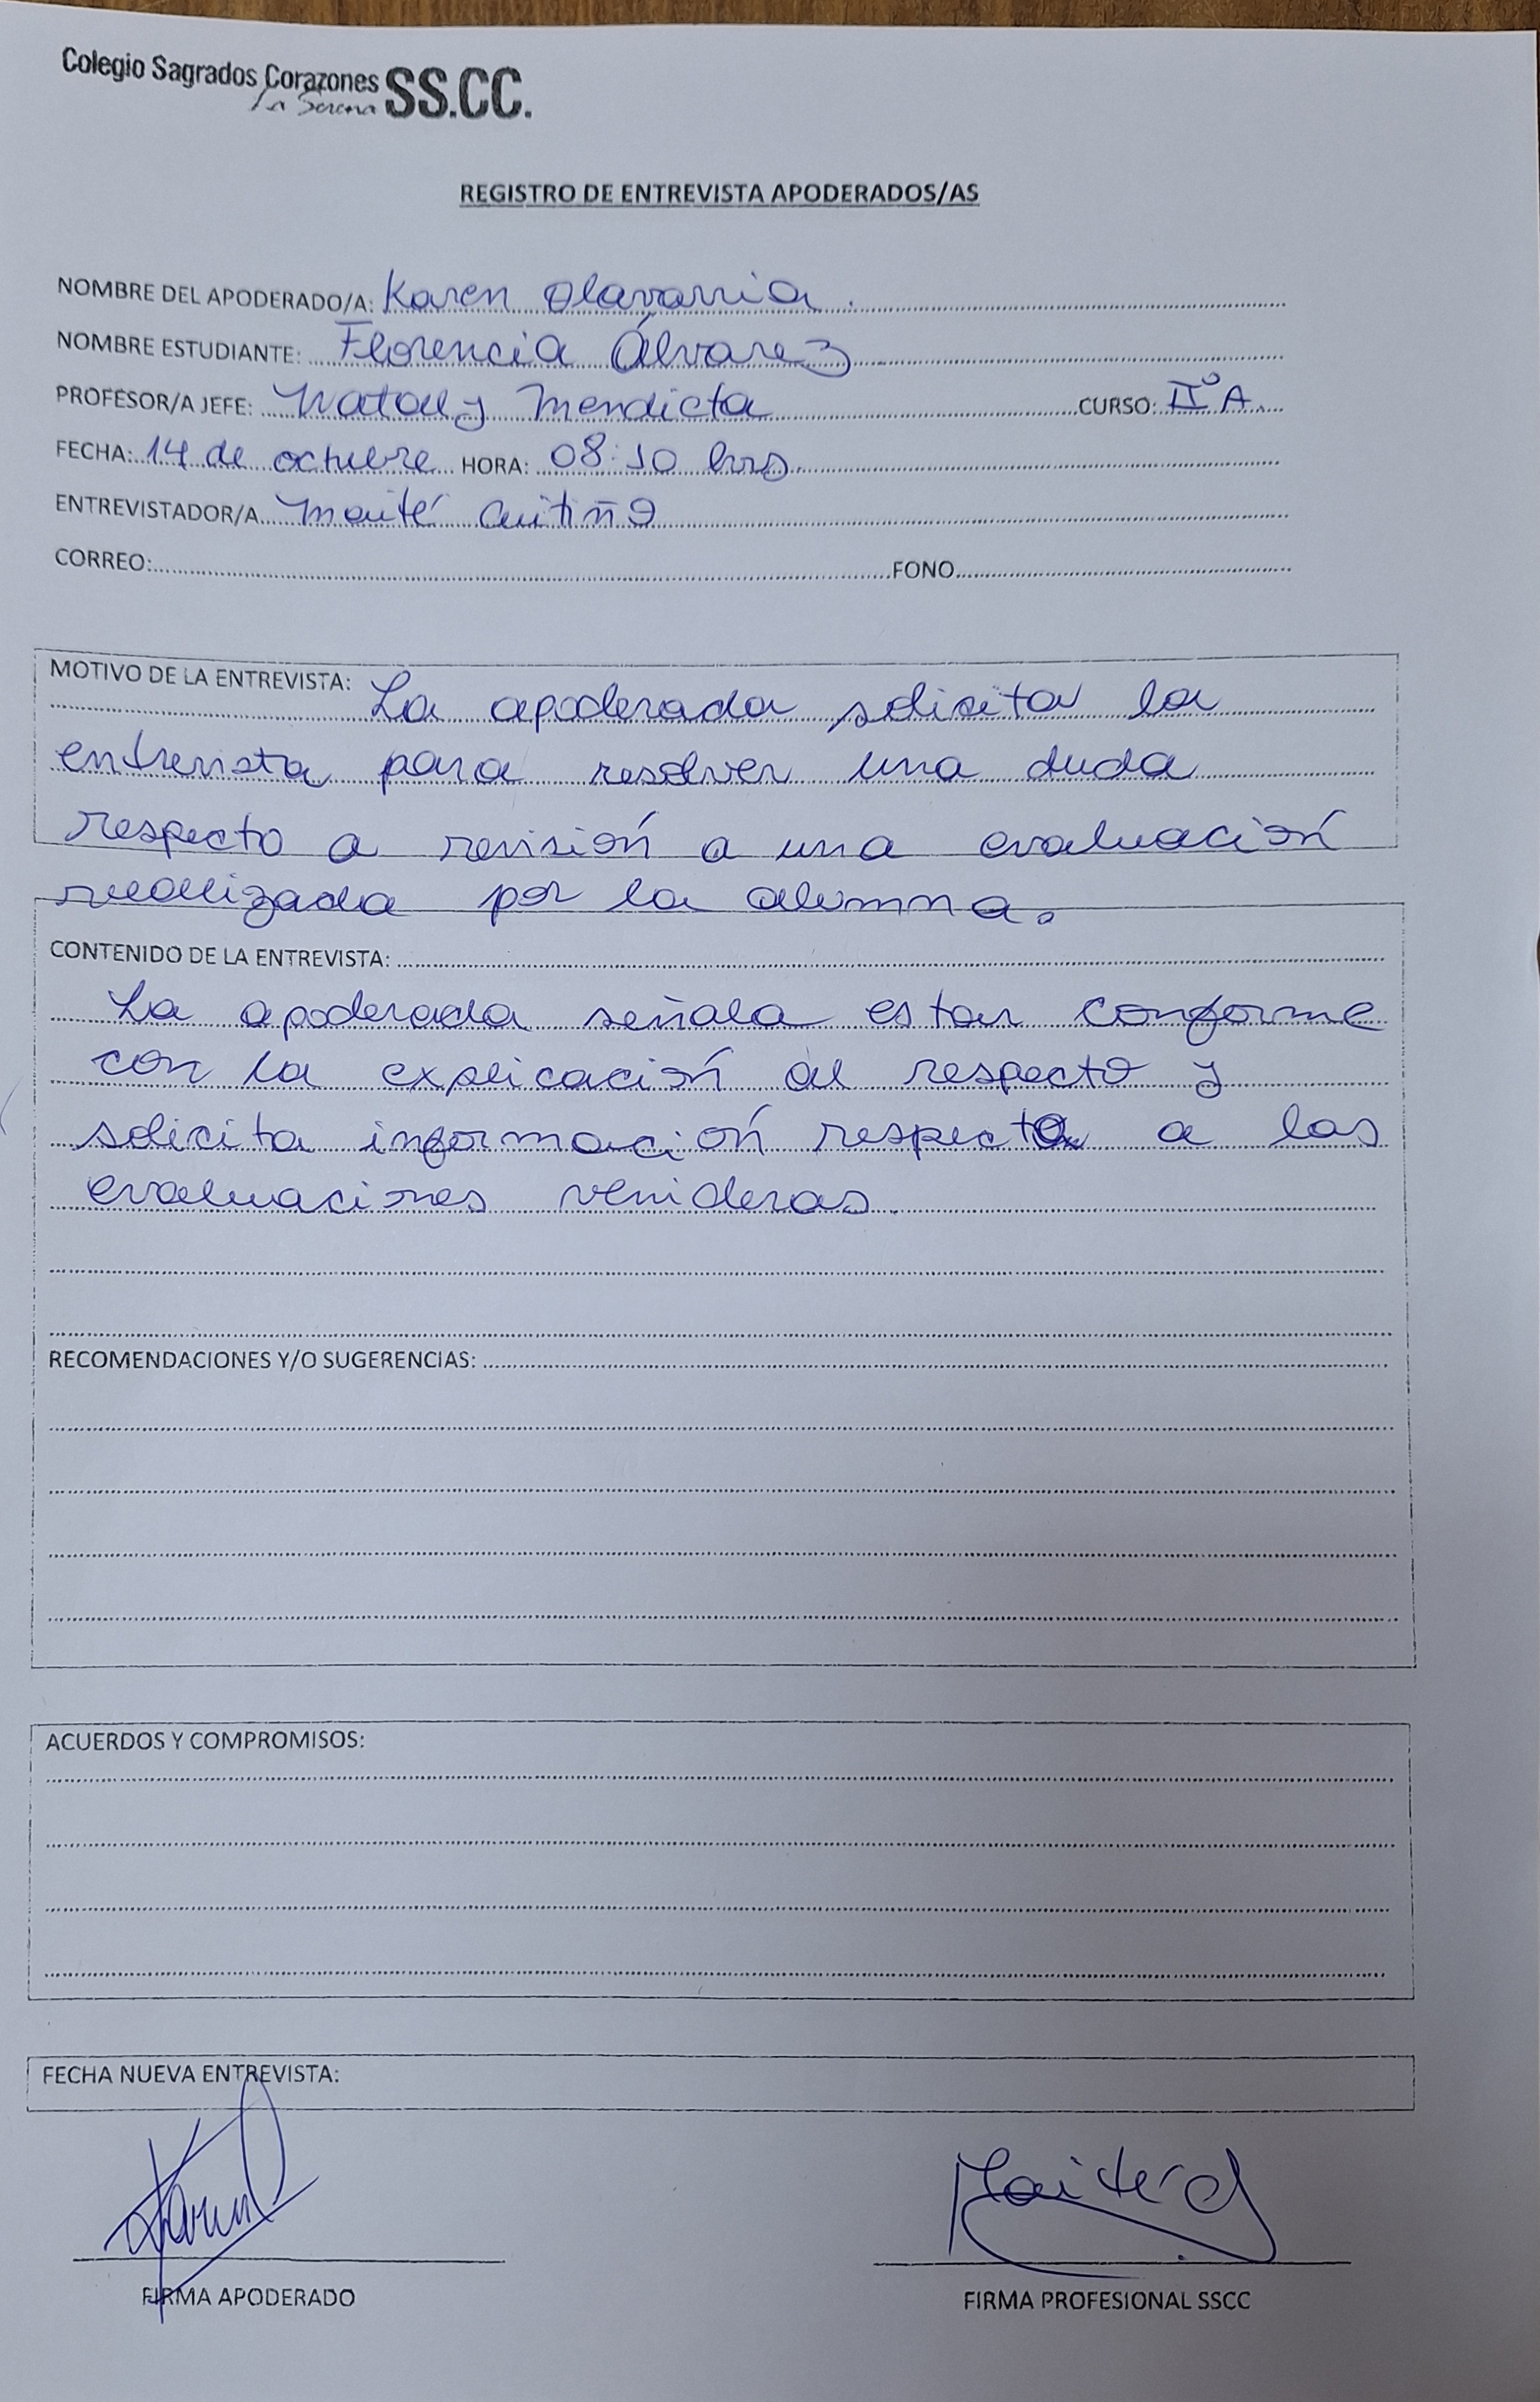 Colegio Sagrados Corazones SS.CC.
La Serena
REGISTRO DE ENTREVISTA APODERADOS/AS
NOMBRE DEL APODERADO/A: Karen Olavarria.
NOMBRE ESTUDIANTE: Florencia Álvarez
PROFESOR/A JEFE: Nataly Mendieta CURSO: II°A.
FECHA: 14 de octubre HORA: 08:10 hrs
ENTREVISTADOR/A Maité Cutiño
CORREO: FONO
MOTIVO DE LA ENTREVISTA: La apoderada solicita la
entrevista para resolver una duda
respecto a revisión a una evaluación
realizada por la alumna.
CONTENIDO DE LA ENTREVISTA:
La apoderada señala estar conforme
con la explicación al respecto y
solicita información respecto a las
evaluaciones venideras.
RECOMENDACIONES Y/O SUGERENCIAS:
ACUERDOS Y COMPROMISOS:
FECHA NUEVA ENTREVISTA:
Maité C
FIRMA APODERADO FIRMA PROFESIONAL SSCC